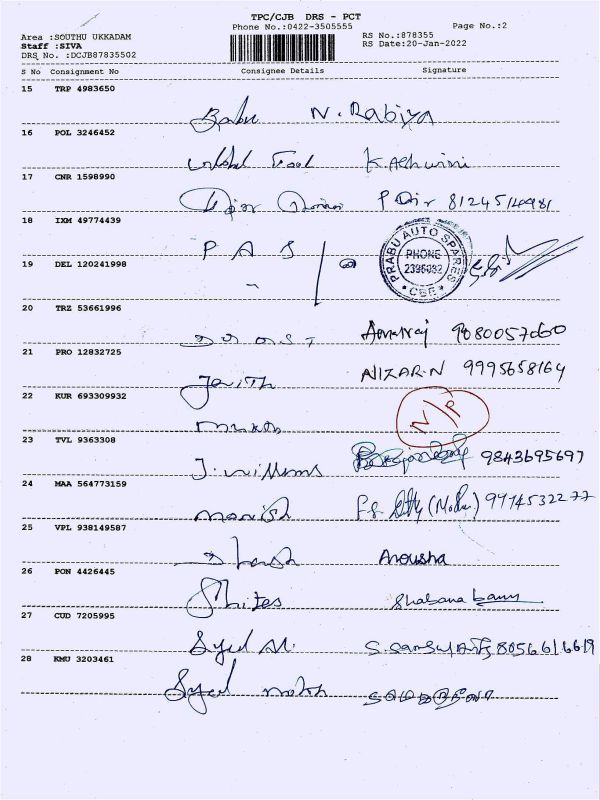 TPC/CJB DRS - PCT
Phone No.:0422-3505555
Page No.:2
Area :SOUTHU UKKADAM
Staff :SIVA
DRS No. :DCJB87835502
RS No.:878355
RS Date:20-Jan-2022
S No Consignment No Consignee Details Signature
15 TRP 4983650
Babu N. Rabiya
16 POL 3246452
K. Ashwini
17 CNR 1598990
8124514981
18 IXM 49774439
P A S
PRABU AUTO SPARES
PHONE
2395032
* CBE *
19 DEL 120241998
20 TRZ 53661996
Amalraj 9080057060
21 PRO 12832725
Jenith NIZAR.N 9995658164
22 KUR 693309932
N/P
23 TVL 9363308
J. willems 9843695697
24 MAA 564773159
Manish 9774532277
25 VPL 938149587
Anousha
26 PON 4426445
Shabana banu
27 CUD 7205995
Syed M. 8056616619
28 KMU 3203461
Syed